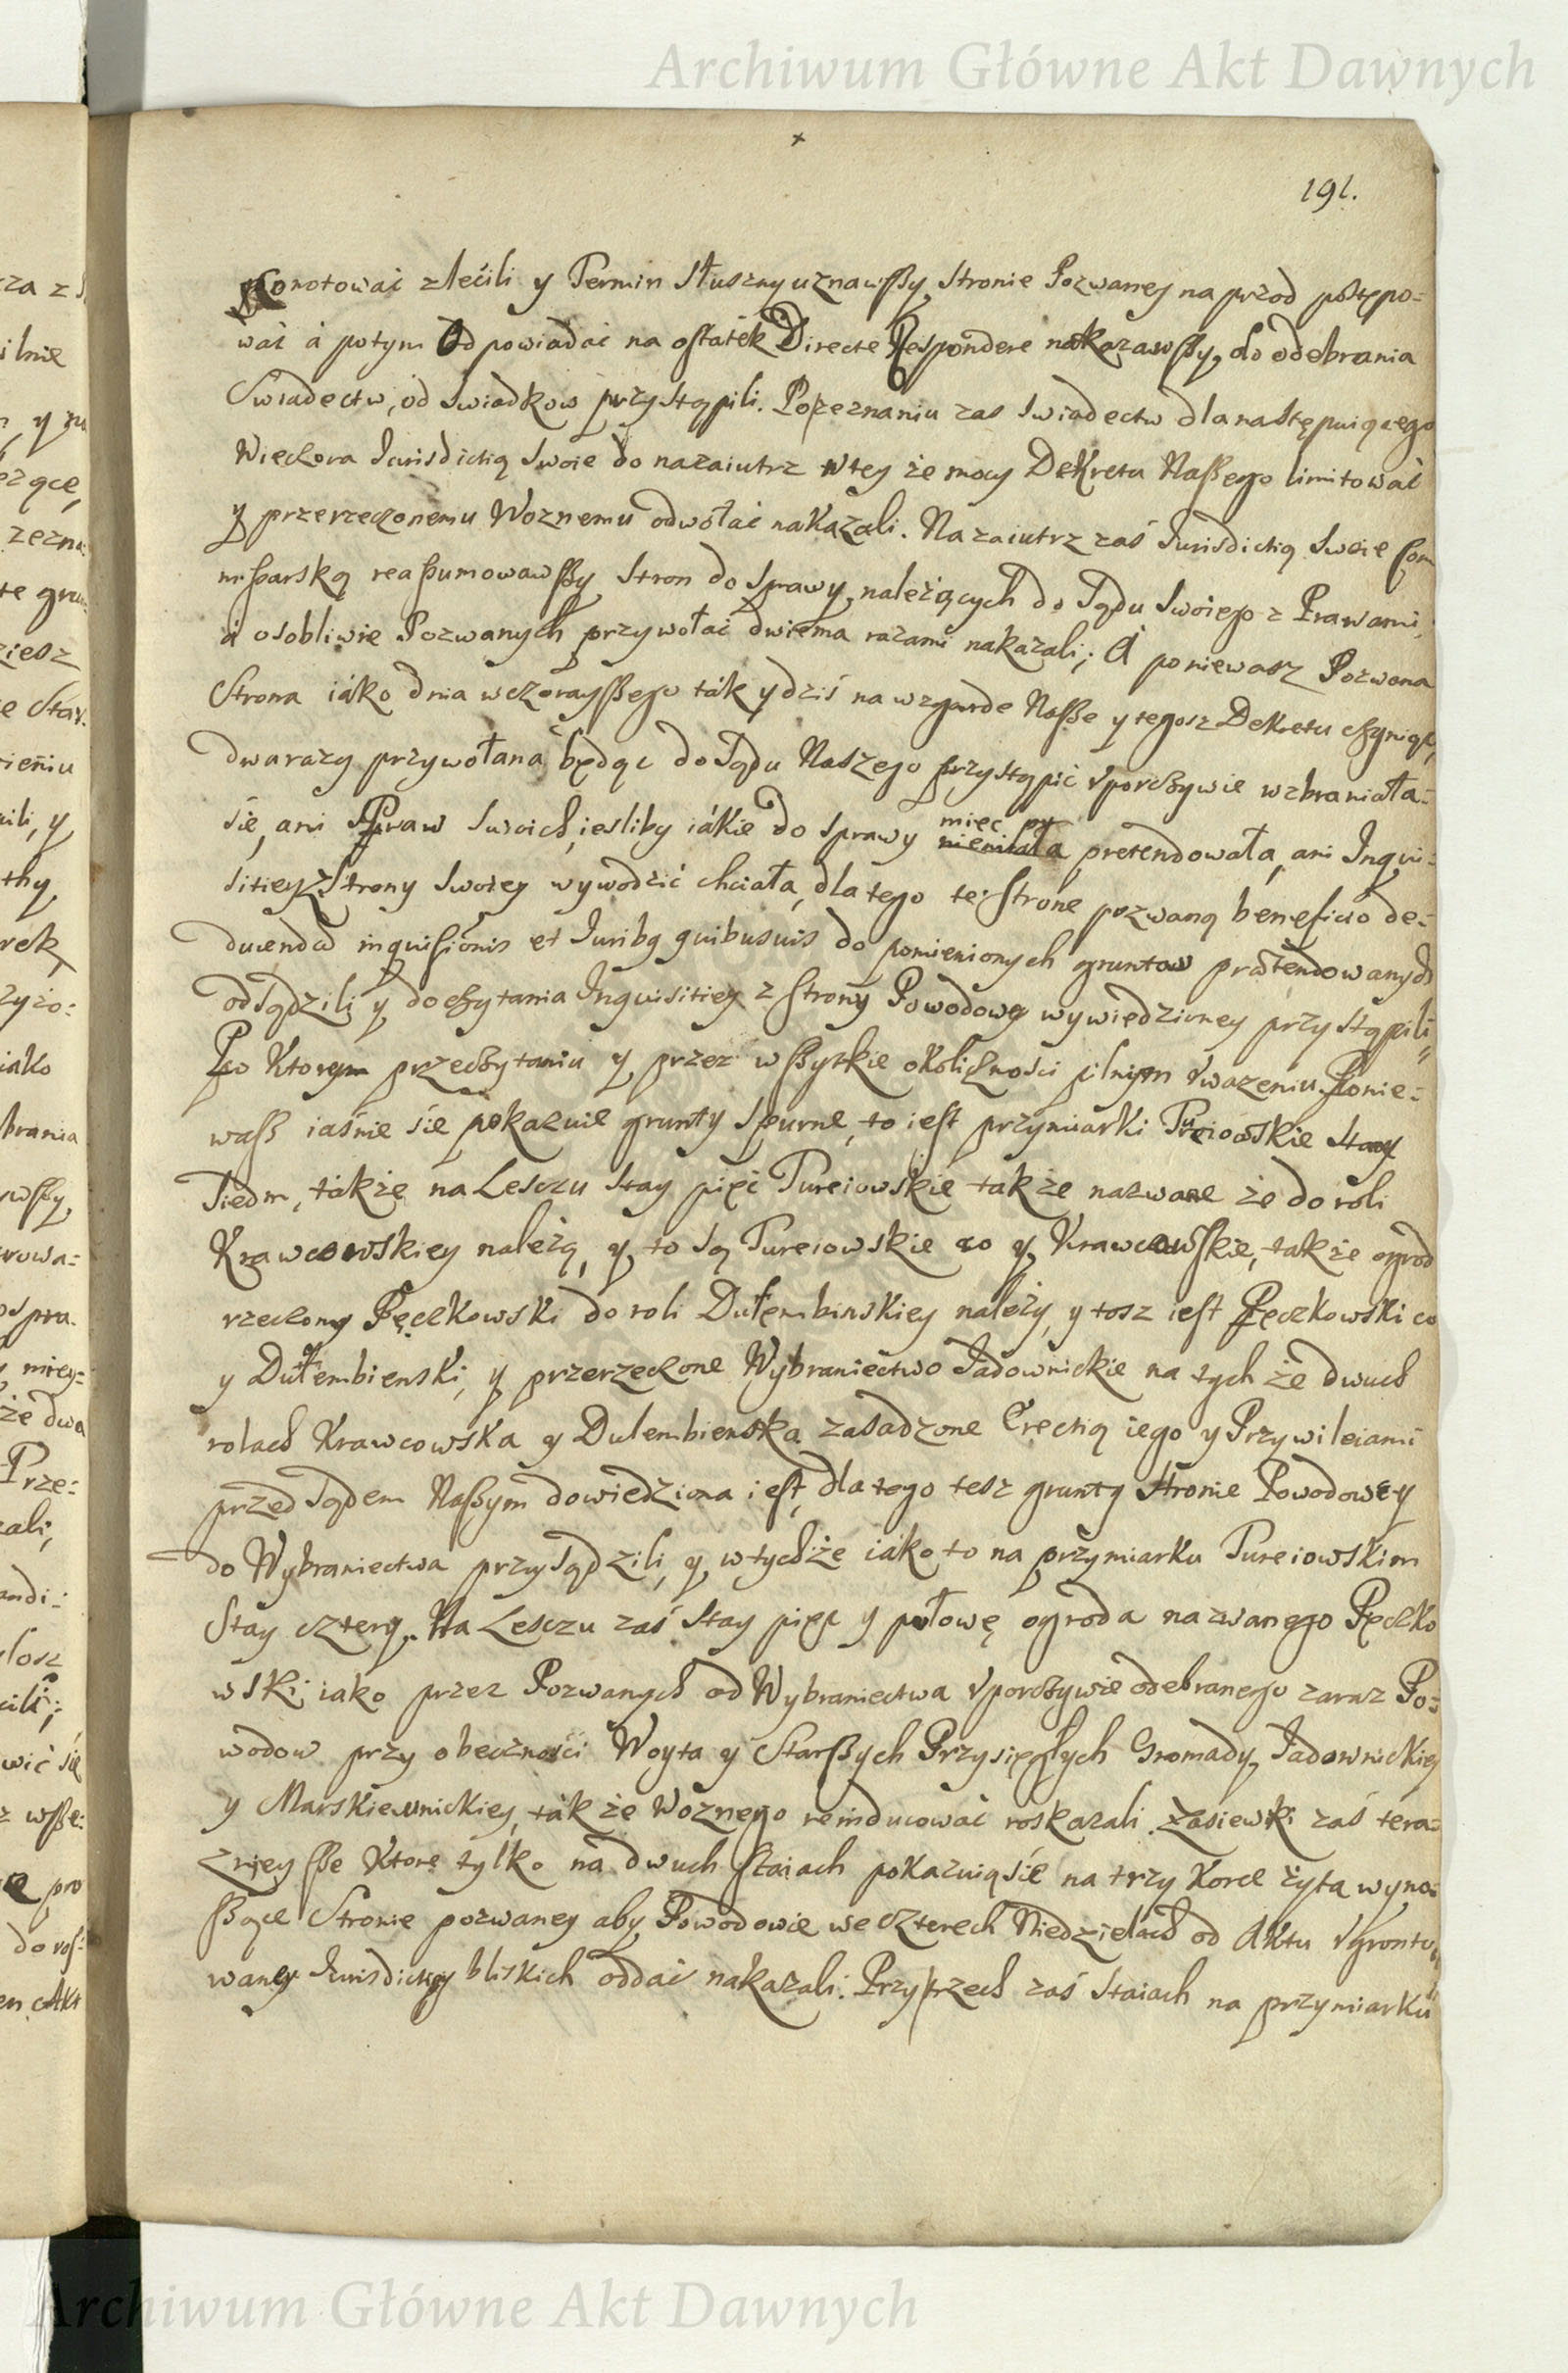 Archiwum Główne Akt Dawnych
191.
konotować zlećili y Termin słuszny uznawszy, stronie Pozwaney naprzod postępo=
wać á potym Odpowiadać na ostatek Directe Respondere nakazawszy, do odebrania
Swiadectw, od swiadkow przystąpili. Po zeznaniu zas swiadectw dla następuiącego
Wieczora Iurisdictią swoie do nazaiutrz w tey że mocy Dekretu Naszego limitować
y przerzeczonemu Woznemu odwołać nakazali. Nazaiutrz zaś Iurisdictią swoie Com
missarską reassumowawszy Stron do sprawy należących do Sądu swoiego z Prawami,
á osobliwie Pozwanych przywołać dwiema razami nakazali; A poniewasz Pozwana
Strona iáko dnia wczorayszego ták y dziś na wzgarde Nasze y tegosz Dekretu czyniąc,
dwarazy przywołana będąc do Sądu Naszego przystąpić Vporczywie wzbraniała=
się, ani Praw swoich, iesliby iákie do sprawy mieć pretendowała, ani Inqui=
sitiey z Strony swoiey wywodzić chciała, dlatego też strone pozwaną beneficio de=
ducenda inquisionis et Iuribq quibusuis do pomienionych gruntow prætendowanych
odsądzili y do czytania Inquisitiey z strony Powodowey wywiedzioney przystąpili,
Po Ktorym przeczytaniu y przez wszytkie okoliczności pilnym Vwazeniu. Ponie=
wasz iaśnie się pokazuie grunty spurne, to iest przymiarki Tureiowskie Stay
Siedm, tákże na Lesczu stay pięć Tureiowskie także nazwane że do roli
Krawcowskiey należą, y to są Tureiowskie co y Krawcowskie, także ogrod
rzeczony Pęczkowski do roli Dułembinskiey należy, y tosz iest Pęczkowski co
y Dułembienski, y przerzeczone Wybraniectwo Jadownickie na tych że dwuch
rolach Krawcowska y Dulembienska zasadzone Erectią iego y Przywileiami
przed Sądem Naszym dowiedziona iest, dla tego tesz grunty stronie Powodowey
do Wybraniectwa przysądzili, y w tychże iáko to na przymiarku Tureiowskim
Stay cztery. Na Lesczu zaś Stay pięć y połowę ogroda nazwanego Pęczko
wski iako przez Pozwanych od Wybraniectwa Vporczywie odebranego zaraz Po=
wodow przy obecznosci Woyta y Starszych Przysięgłych Gromady Jadownickiey
y Marskiewnickiey, ták że Woznego reinducować roskazali. Zasiewki zaś tera=
znieysze Ktore tylko na dwuch Staiach pokazuią się na trzy Korce żyta wyno=
szące Stronie pozwaney aby Powodowie we czterech Niedzielach od Aktu Vgronto=
waney Iurisdictiey bliskich oddać nakazali. Przy trzech zaś Staiach na przymiarku
Archiwum Główne Akt Dawnych